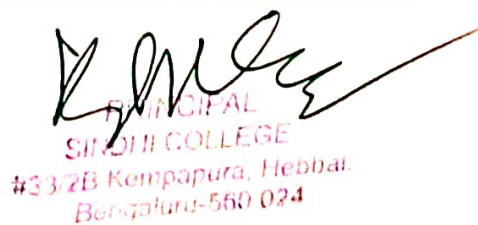 PRINCIPAL
SINDHI COLLEGE
#33/2B Kempapura, Hebbal,
Bengaluru-560 024